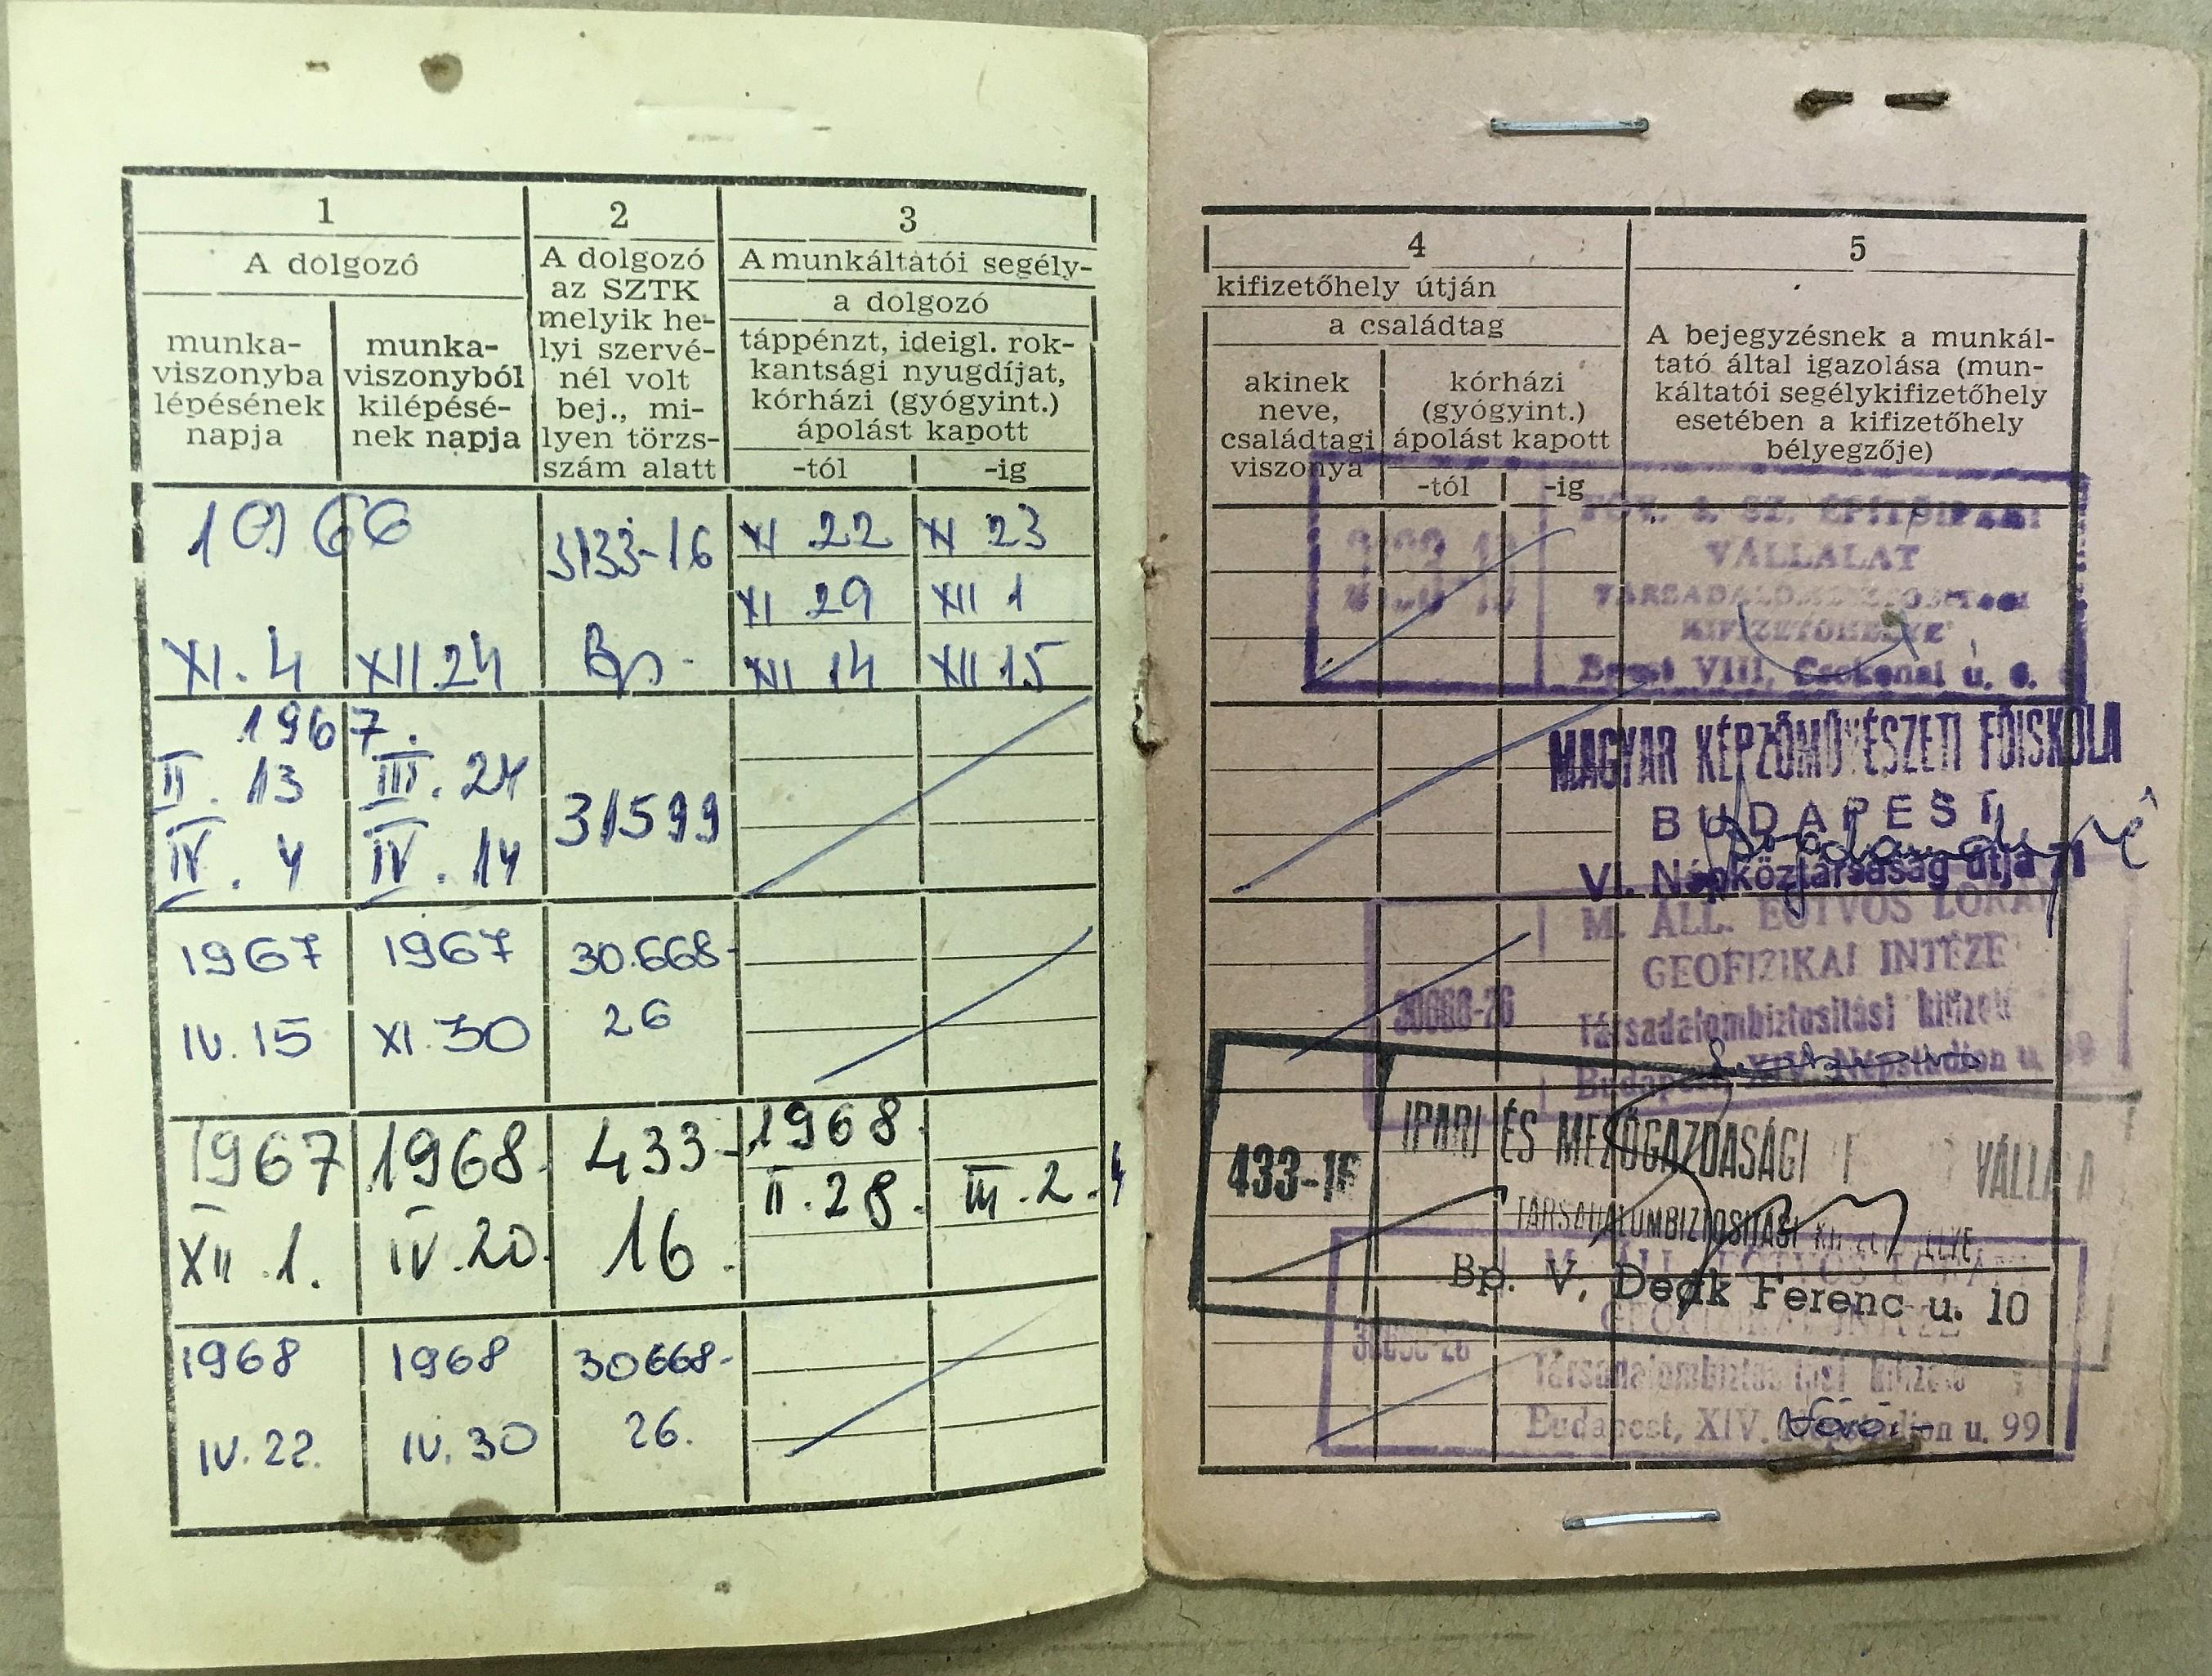 1
A dolgozó
munka-
viszonyba
lépésének
napja
munka-
viszonyból
kilépésé-
nek napja
2
A dolgozó
az SZTK
melyik he-
lyi szervé-
nél volt
bej., mi-
lyen törzs-
szám alatt
3
A munkáltatói segély-
a dolgozó
táppénzt, ideigl. rok-
kantsági nyugdíjat,
kórházi (gyógyint.)
ápolást kapott
-tól
-ig
1966
XI. 4
XII 24
3133-16
Bp.
XI 22
XI 23
XI 29
XII 1
XII 14
XII 15
1967.
II. 13
III. 24
IV. 4
IV. 14
31599
1967
1967
30.668-
IV. 15
XI. 30
26
1967
1968.
433-
1968.
XII. 1.
IV. 20.
16.
II. 28.
III. 2.
1968
1968
30668-
IV. 22.
IV. 30
26.
4
kifizetőhely útján
a családtag
akinek
neve,
családtagi
viszonya
kórházi
(gyógyint.)
ápolást kapott
-tól
-ig
5
A bejegyzésnek a munkál-
tató által igazolása (mun-
káltatói segélykifizetőhely
esetében a kifizetőhely
bélyegzője)
ÉPÍTŐIPARI
VÁLLALAT
TÁRSADALOMBIZTOSÍTÁSI
KIFIZETŐHELYE
VIII, Csokonai u.
MAGYAR KÉPZŐMŰVÉSZETI FŐISKOLA
BUDAPEST
VI. Népköztársaság útja 71
M. ÁLL. EÖTVÖS LORÁN
GEOFIZIKAI INTÉZE
30668-26
Társadalombiztosítási kifizető
Budapest, XIV. Népstadion u. 99
433-16
IPARI ÉS MEZŐGAZDASÁGI VÁLLA
TÁRSADALOMBIZTOSÍTÁSI
Bp. V, Deák Ferenc u. 10
M. ÁLL. EÖTVÖS LORÁN
GEOFIZIKAI INTÉZE
Társadalombiztosítási kifizető
Budapest, XIV. Népstadion u. 99